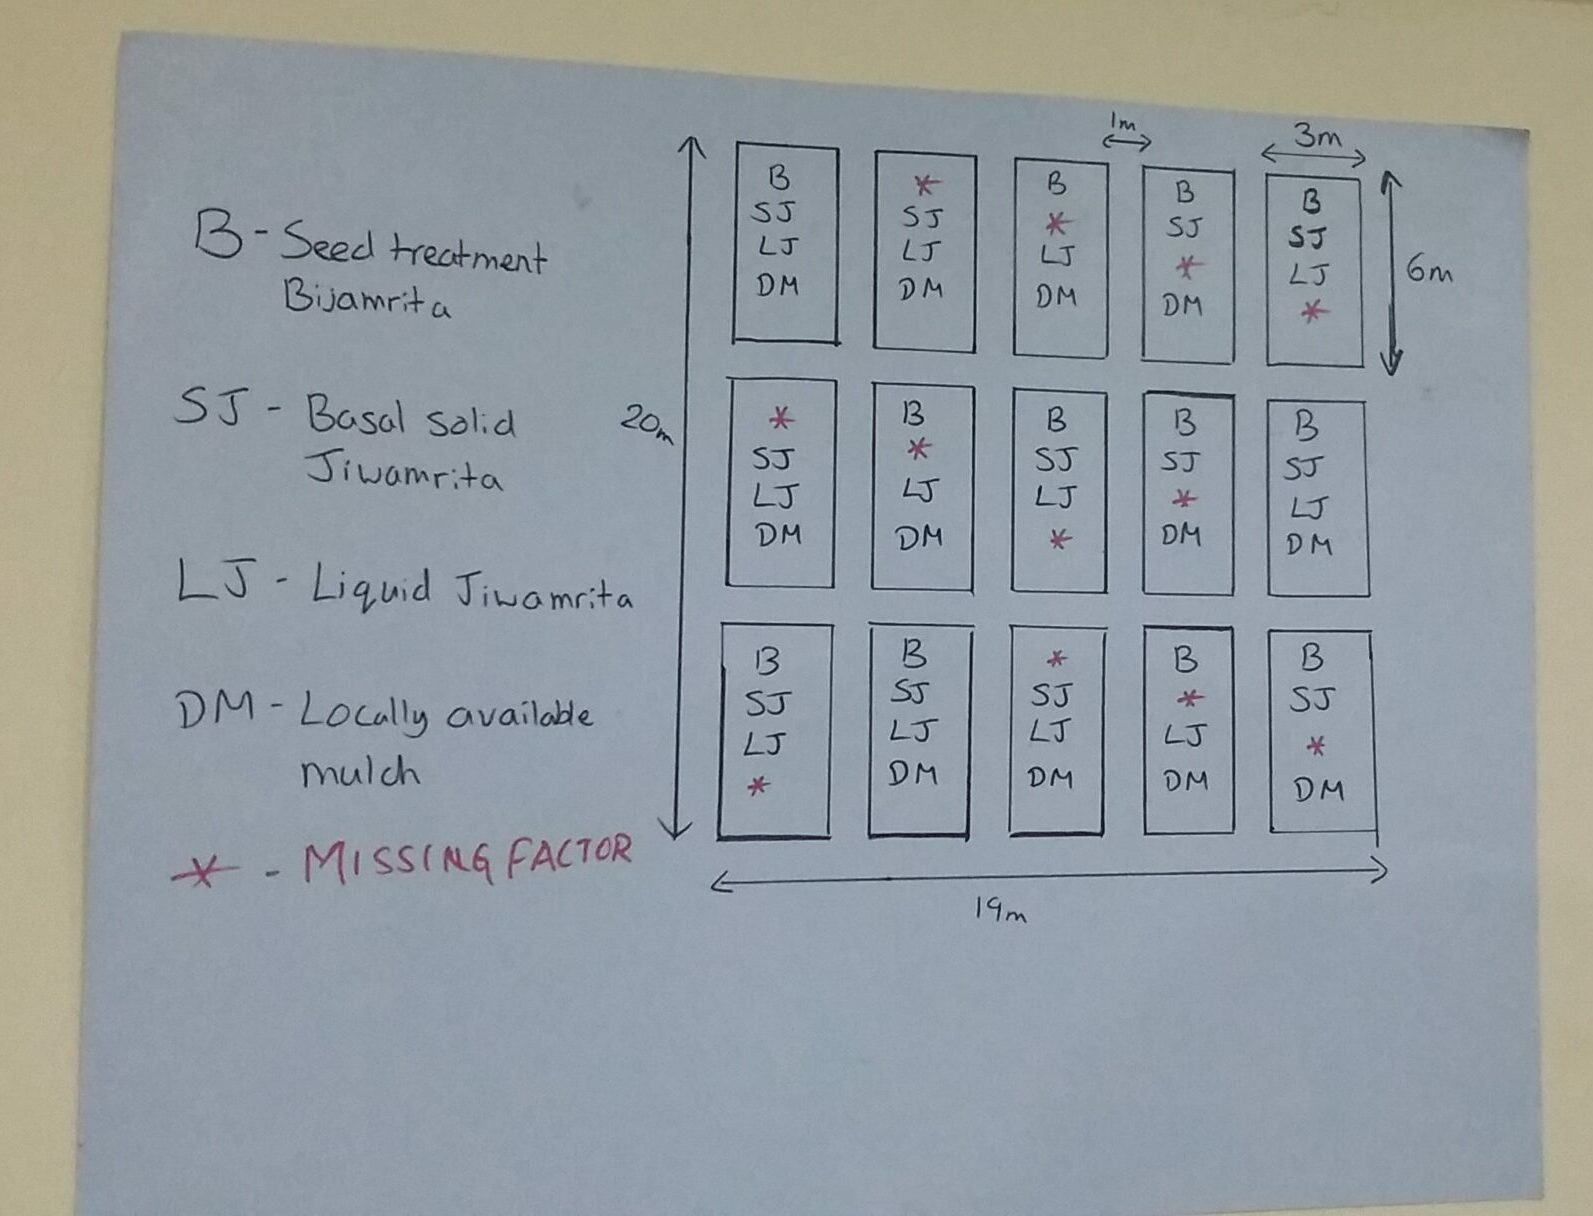 B - Seed treatment
Bijamrita
SJ - Basal solid
Jiwamrita
LJ - Liquid Jiwamrita
DM - Locally available
mulch
* - MISSING FACTOR
20m
1m
3m
6m
19m
B
SJ
LJ
DM
*
SJ
LJ
DM
B
*
LJ
DM
B
SJ
*
DM
B
SJ
LJ
*
*
SJ
LJ
DM
B
*
LJ
DM
B
SJ
LJ
*
B
SJ
*
DM
B
SJ
LJ
DM
B
SJ
LJ
*
B
SJ
LJ
DM
*
SJ
LJ
DM
B
*
LJ
DM
B
SJ
*
DM